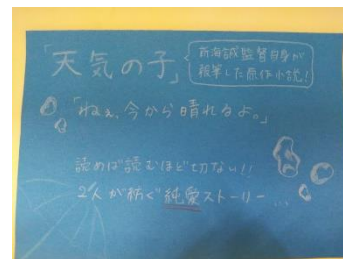 「天気の子」
新海誠監督自身が
執筆した原作小説！
「ねぇ、今から晴れるよ。」
読めば読むほど切ない!!
2人が紡ぐ純愛ストーリー...